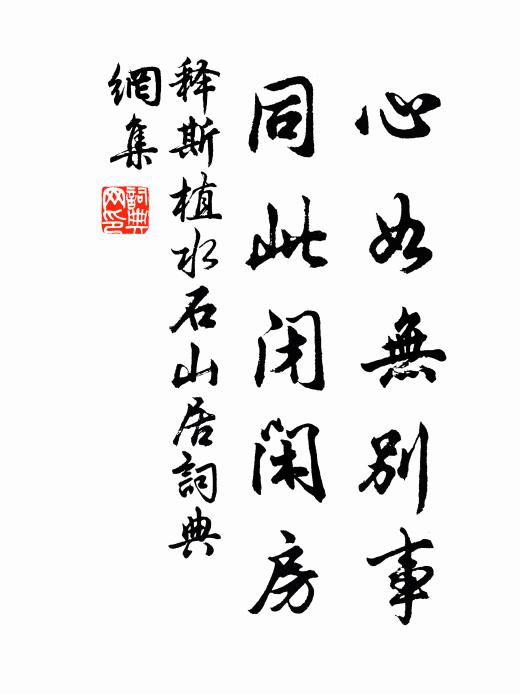 心如無別事
同此闭閑房
释斯植水石山居詞典
網集
詞典
网印